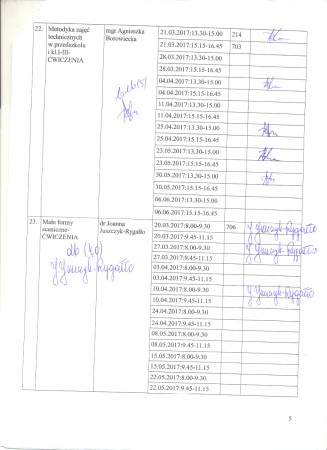 22. Metodyka zajęć technicznych w przedszkolu i kl.I-III- ĆWICZENIA
mgr Agnieszka Borowiecka
21.03.2017:13.30-15.00 214
21.03.2017:15.15-16.45 703
28.03.2017:13.30-15.00
28.03.2017:15.15-16.45
04.04.2017:13.30-15.00
04.04.2017:15.15-16.45
11.04.2017:13.30-15.00
11.04.2017:15.15-16.45
25.04.2017:13.30-15.00
25.04.2017:15.15-16.45
23.05.2017:13.30-15.00
23.05.2017:15.15-16.45
30.05.2017:13.30-15.00
30.05.2017:15.15-16.45
06.06.2017:13.30-15.00
06.06.2017:15.15-16.45
23. Małe formy sceniczne- ĆWICZENIA
db (4,0)
J Juszczyk-Rygałło
dr Joanna Juszczyk-Rygałło
20.03.2017:8.00-9.30 706 J Juszczyk-Rygałło
20.03.2017:9.45-11.15
27.03.2017:8.00-9.30 J Juszczyk-Rygałło
27.03.2017:9.45-11.15
03.04.2017:8.00-9.30
03.04.2017:9.45-11.15
10.04.2017:8.00-9.30 J Juszczyk-Rygałło
10.04.2017:9.45-11.15
24.04.2017:8.00-9.30
24.04.2017:9.45-11.15
08.05.2017:8.00-9.30
08.05.2017:9.45-11.15
15.05.2017:8.00-9.30
15.05.2017:9.45-11.15
22.05.2017:8.00-9.30
22.05.2017:9.45-11.15
5